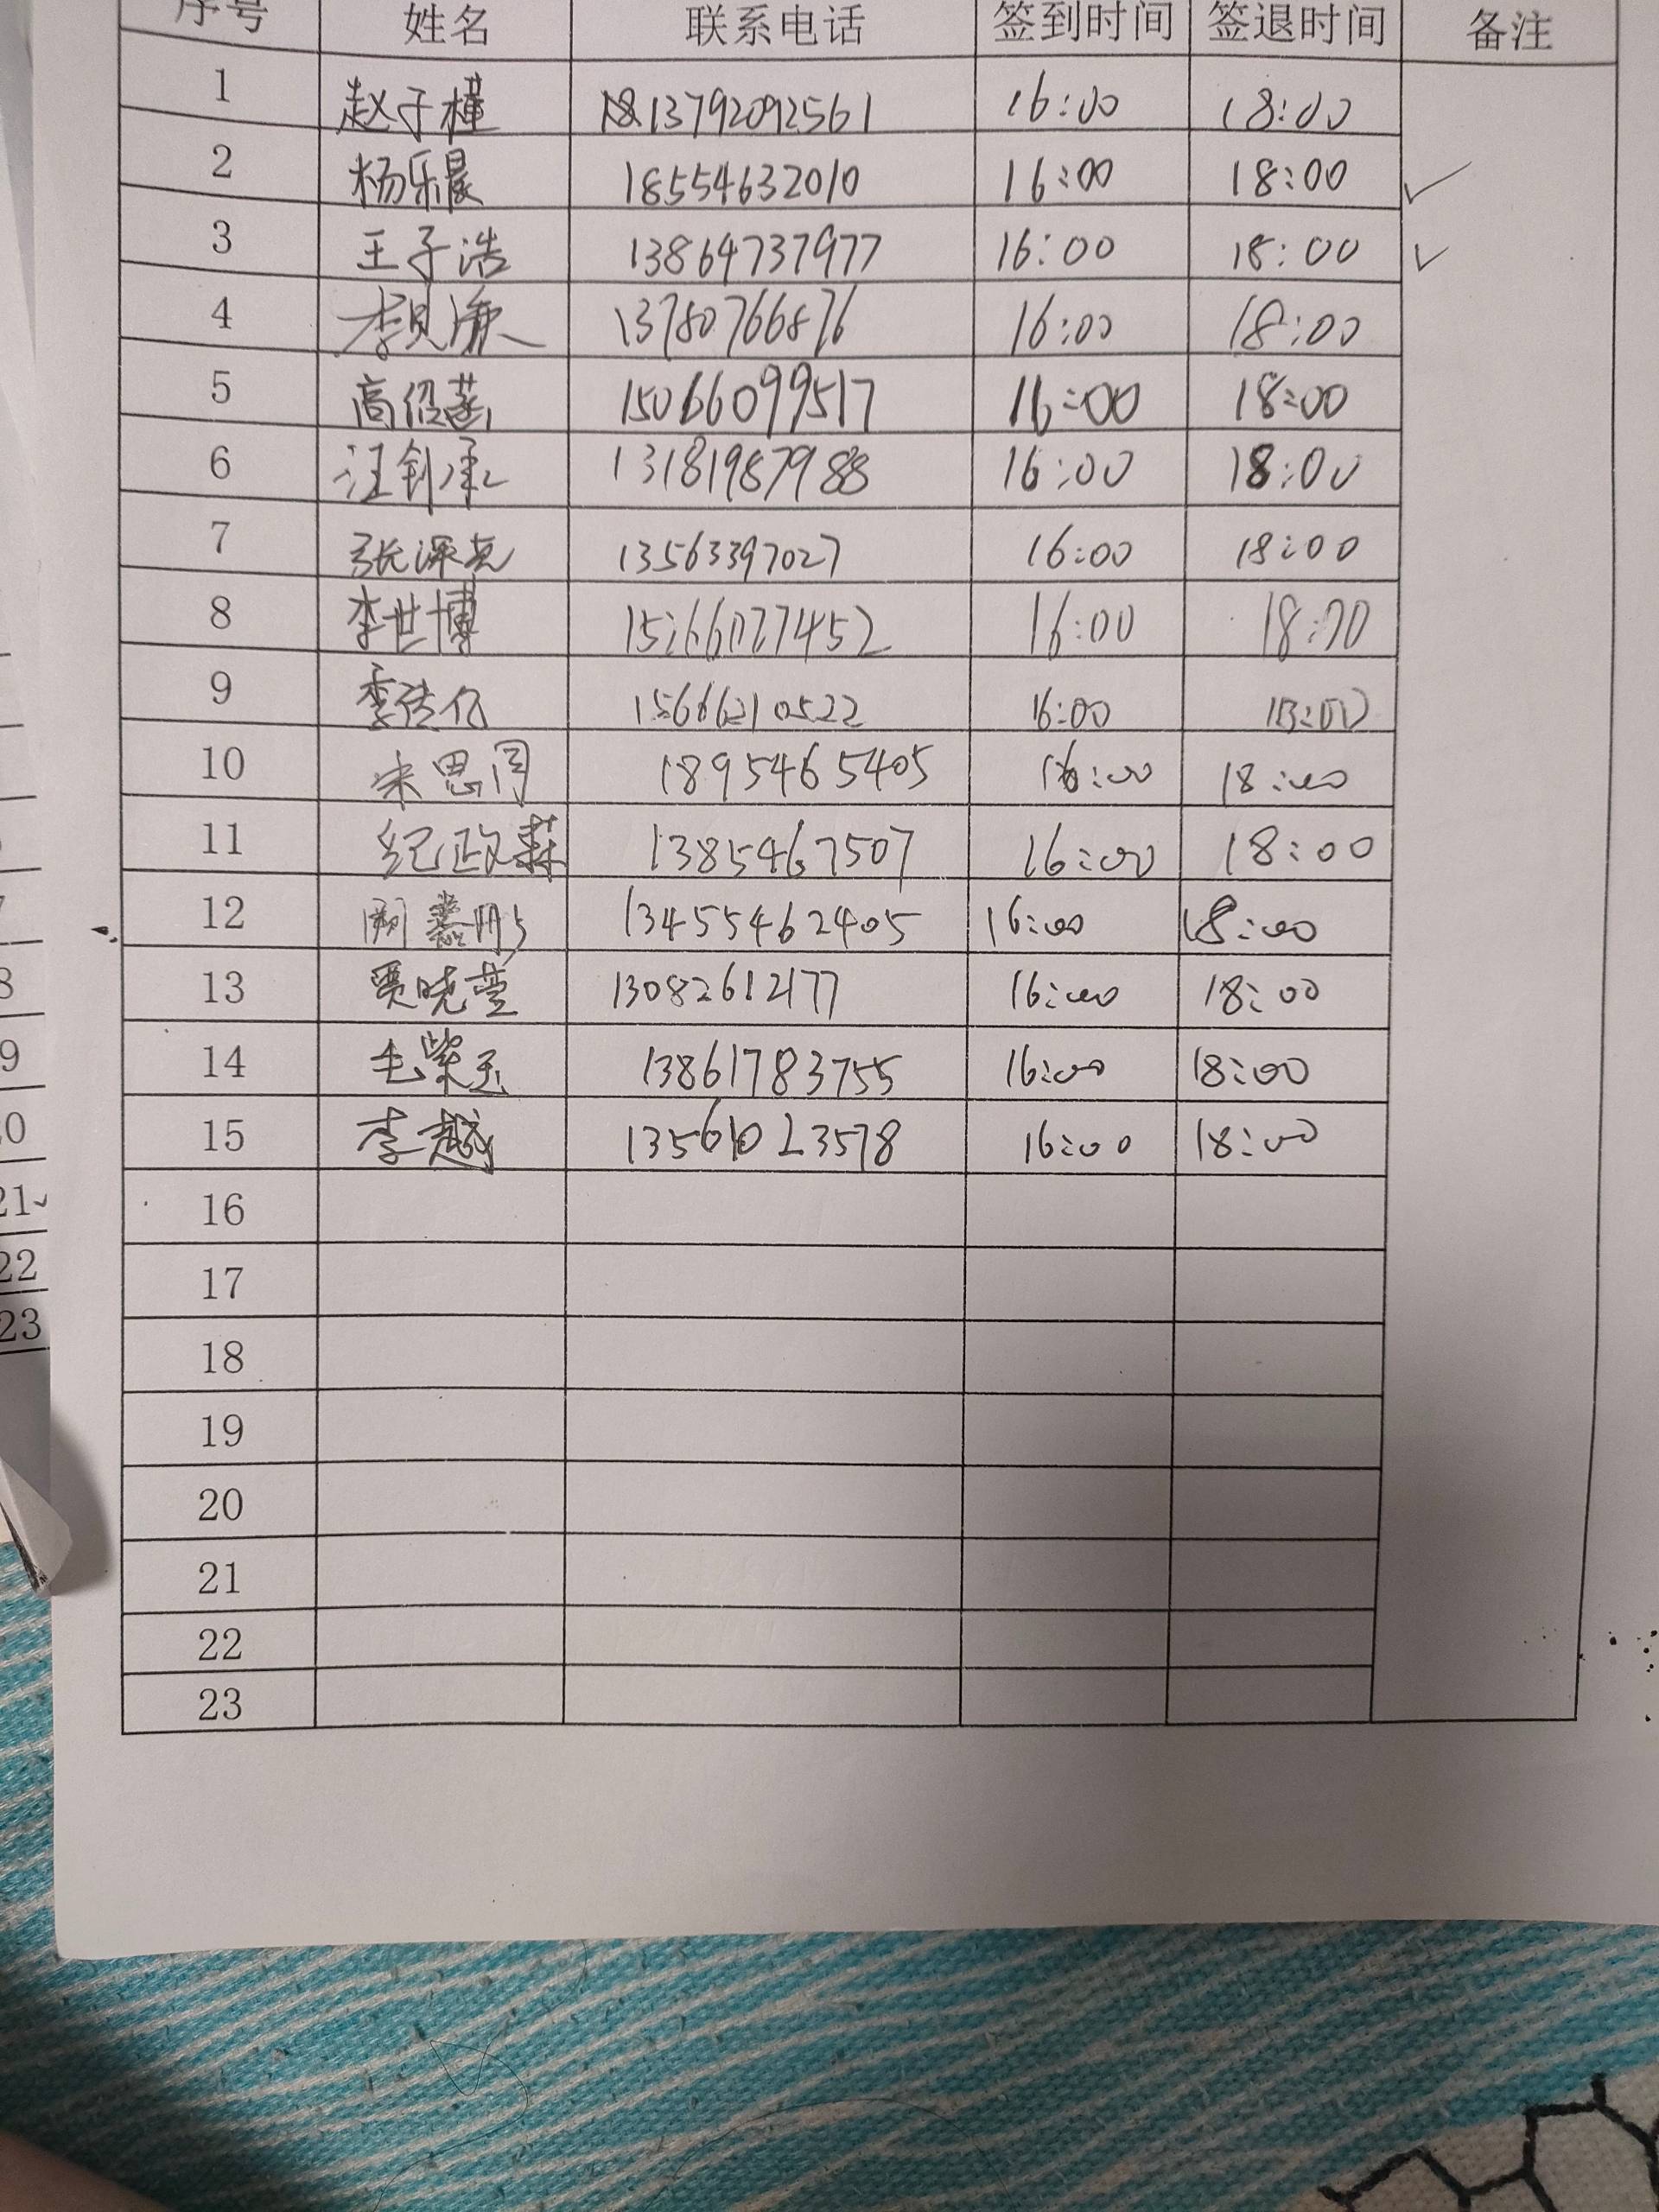 序号 姓名 联系电话 签到时间 签退时间 备注
1 赵于槿 13792092561 16:00 18:00
2 杨乐晨 18554632010 16:00 18:00 ✓
3 王子浩 13864737977 16:00 18:00 ✓
4 李 13780766876 16:00 18:00
5 高 15066099517 16:00 18:00
6 汪钊承 13181987988 16:00 18:00
7 张 13563397027 16:00 18:00
8 李世博 16:00 18:00
9 李传亿 16:00 18:00
10 宋思同 1895465405 16:00 18:00
11 纪政霖 1385467507 16:00 18:00
12 13455462405 16:00 18:00
13 贾晓萱 13082612177 16:00 18:00
14 毛紫玉 13861783755 16:00 18:00
15 李越 16:00 18:00
16
17
18
19
20
21
22
23
21
22
23